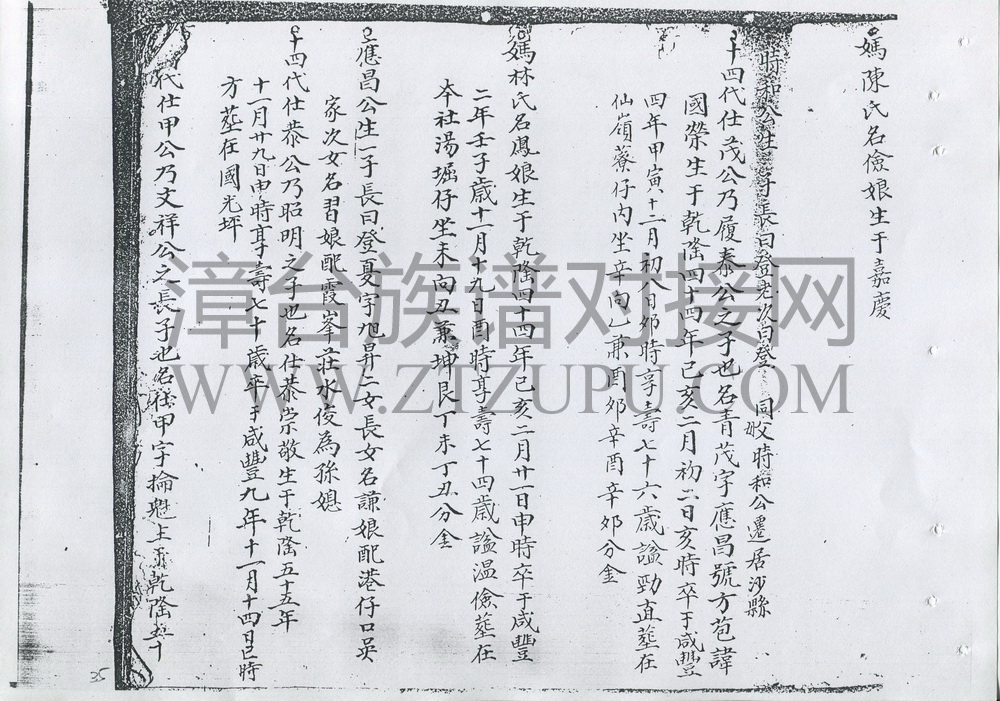 媽陳氏名儉娘生于嘉慶
時和公生 子長曰登老次曰登 同妣時和公遷居沙縣
十四代仕茂公乃履泰公之子也名青茂字應昌號方苞諱
國榮生于乾隆四十四年己亥二月初二日亥時卒于咸豐
四年甲寅十二月初八日卯時享壽七十六歲諡勁直葬在
仙嶺藔仔内坐辛向乙兼酉卯辛酉辛卯分金
媽林氏名鳳娘生于乾隆四十四年己亥二月廿一日申時卒于咸豐
二年壬子歲十一月十九日酉時享壽七十四歲諡温儉葬在
本社湯堀仔坐未向丑兼坤艮丁未丁丑分金
應昌公生一子長曰登夏字旭昇二女長女名謙娘配港仔口吳
家次女名習娘配霞峯莊水俊為孫媳
十四代仕恭公乃昭明之子也名仕恭崇敬生于乾隆五十五年
十一月廿九日申時享壽七十歲卒于咸豐九年十一月十四日巳時
方葬在國光坪
代仕甲公乃文祥公之長子也名仕甲字掄魁生 乾隆五十
漳台族谱对接网
WWW.ZTZUPU.COM
35